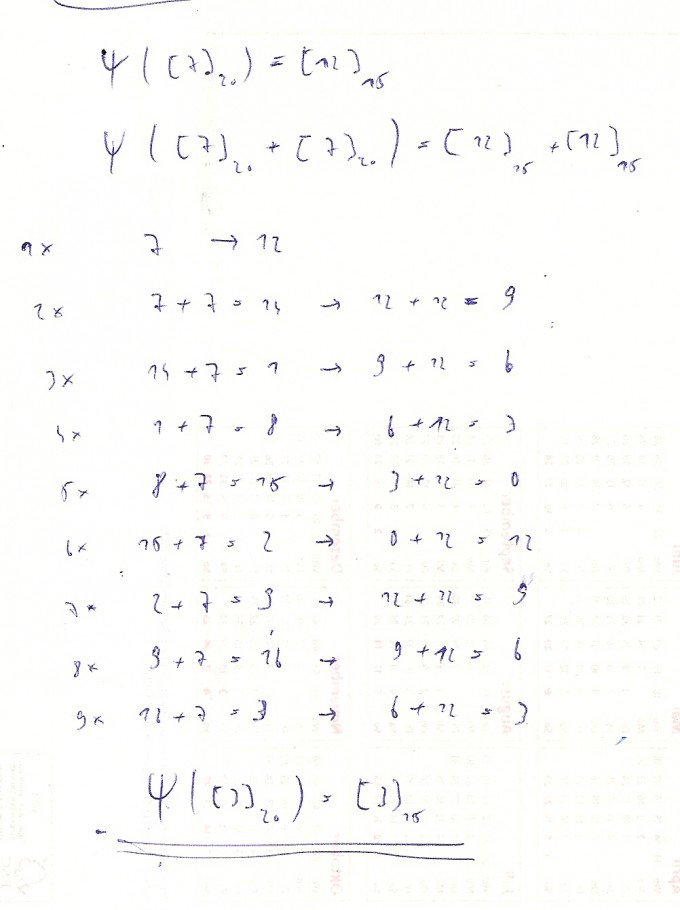 Ψ([7]₂₀) = [12]₁₅
Ψ([7]₂₀ + [7]₂₀) = [12]₁₅ + [12]₁₅
1x 7 → 12
2x 7 + 7 = 14 → 12 + 12 = 9
3x 14 + 7 = 1 → 9 + 12 = 6
4x 1 + 7 = 8 → 6 + 12 = 3
5x 8 + 7 = 15 → 3 + 12 = 0
6x 15 + 7 = 2 → 0 + 12 = 12
7x 2 + 7 = 9 → 12 + 12 = 9
8x 9 + 7 = 16 → 9 + 12 = 6
9x 12 + 7 = 3 → 6 + 12 = 3
Ψ([3]₂₀) = [3]₁₅